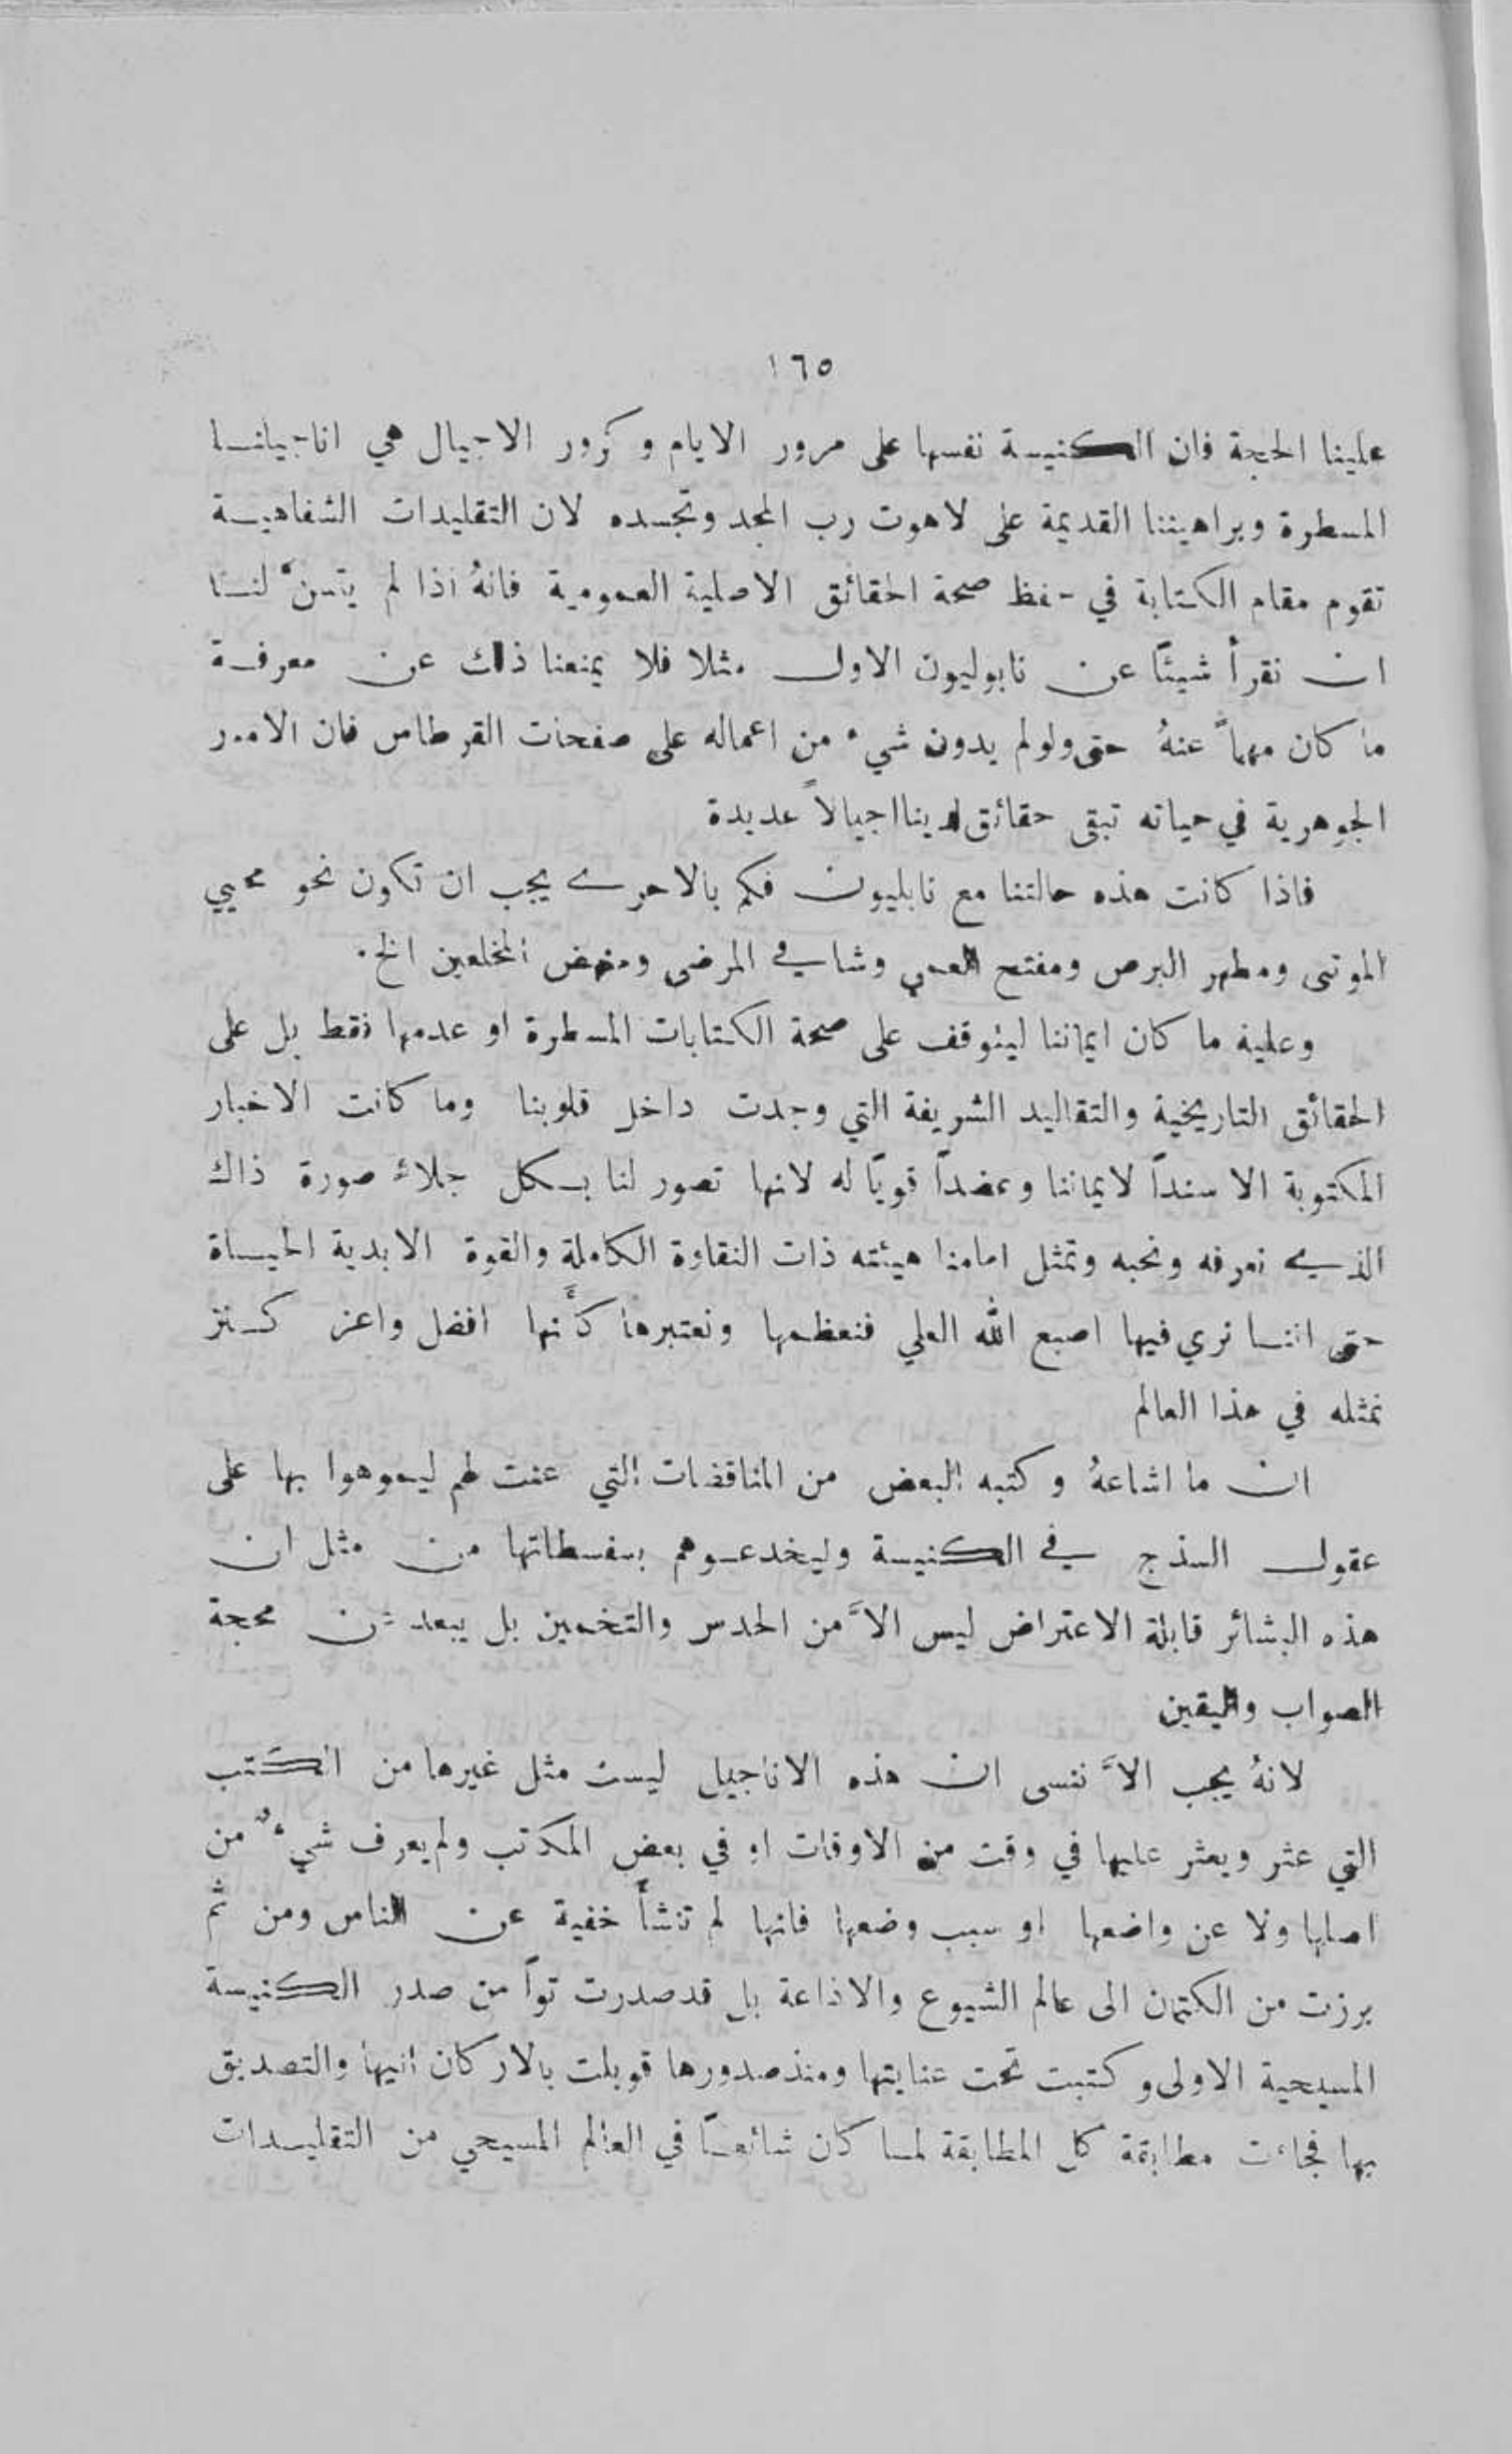 ١٦٥
علينا الحجة فان الكنيسة نفسها على مرور الايام وكرور الاجيال هي اناجيلنا
المسطرة وبراهيننا القديمة على لاهوت رب المجد وتجسده لان التقليدات الشفاهية
تقوم مقام الكتابة في حفظ صحة الحقائق الاصلية العمومية فانهُ اذا لم يتسنَّ لنا
ان نقرأ شيئًا عن نابوليون الاول مثلا فلا يمنعنا ذلك عن معرفة
ما كان مهماً عنهُ حتى ولو لم يدون شيء من اعماله على صفحات القرطاس فان الامور
الجوهرية في حياته تبقى حقائق لدينا اجيالاً عديدة
فاذا كانت هذه حالتنا مع نابليون فكم بالاحرى يجب ان تكون نحو محيي
الموتى ومطهر البرص ومفتح العمي وشافي المرضى ومنهض المخلعين الخ.
وعليه ما كان ايماننا ليتوقف على صحة الكتابات المسطرة او عدمها فقط بل على
الحقائق التاريخية والتقاليد الشريفة التي وجدت داخل قلوبنا وما كانت الاخبار
المكتوبة الا سنداً لايماننا وعضداً قويًا له لانها تصور لنا بكل جلاء صورة ذاك
الذي نعرفه ونحبه وتمثل امامنا هيئته ذات النقاوة الكاملة والقوة الابدية الحياة
حتى اننا نري فيها اصبع الله العلي فنعظمها ونعتبرها كأنها افضل واعز كنز
نمثله في هذا العالم
ان ما اشاعهُ وكتبه البعض من المناقضات التي عنت لهم ليموهوا بها على
عقول السذج في الكنيسة وليخدعوهم بسفسطاتها من مثل ان
هذه البشائر قابلة الاعتراض ليس الاَّ من الحدس والتخمين بل يبعد عن محجة
الصواب واليقين
لانهُ يجب الاَّ ننسى ان هذه الاناجيل ليست مثل غيرها من الكتب
التي عثر ويعثر عليها في وقت من الاوقات او في بعض المكاتب ولم يعرف شيءٌ من
اصلها ولا عن واضعها او سبب وضعها فانها لم تنشأ خفية عن الناس ومن ثم
برزت من الكتمان الى عالم الشيوع والاذاعة بل قد صدرت تواً من صدر الكنيسة
المسيحية الاولى وكتبت تحت عنايتها ومنذ صدورها قوبلت بالاركان اليها والتصديق
بها فجاءت مطابقة كل المطابقة لما كان شائعاً في العالم المسيحي من التقليدات